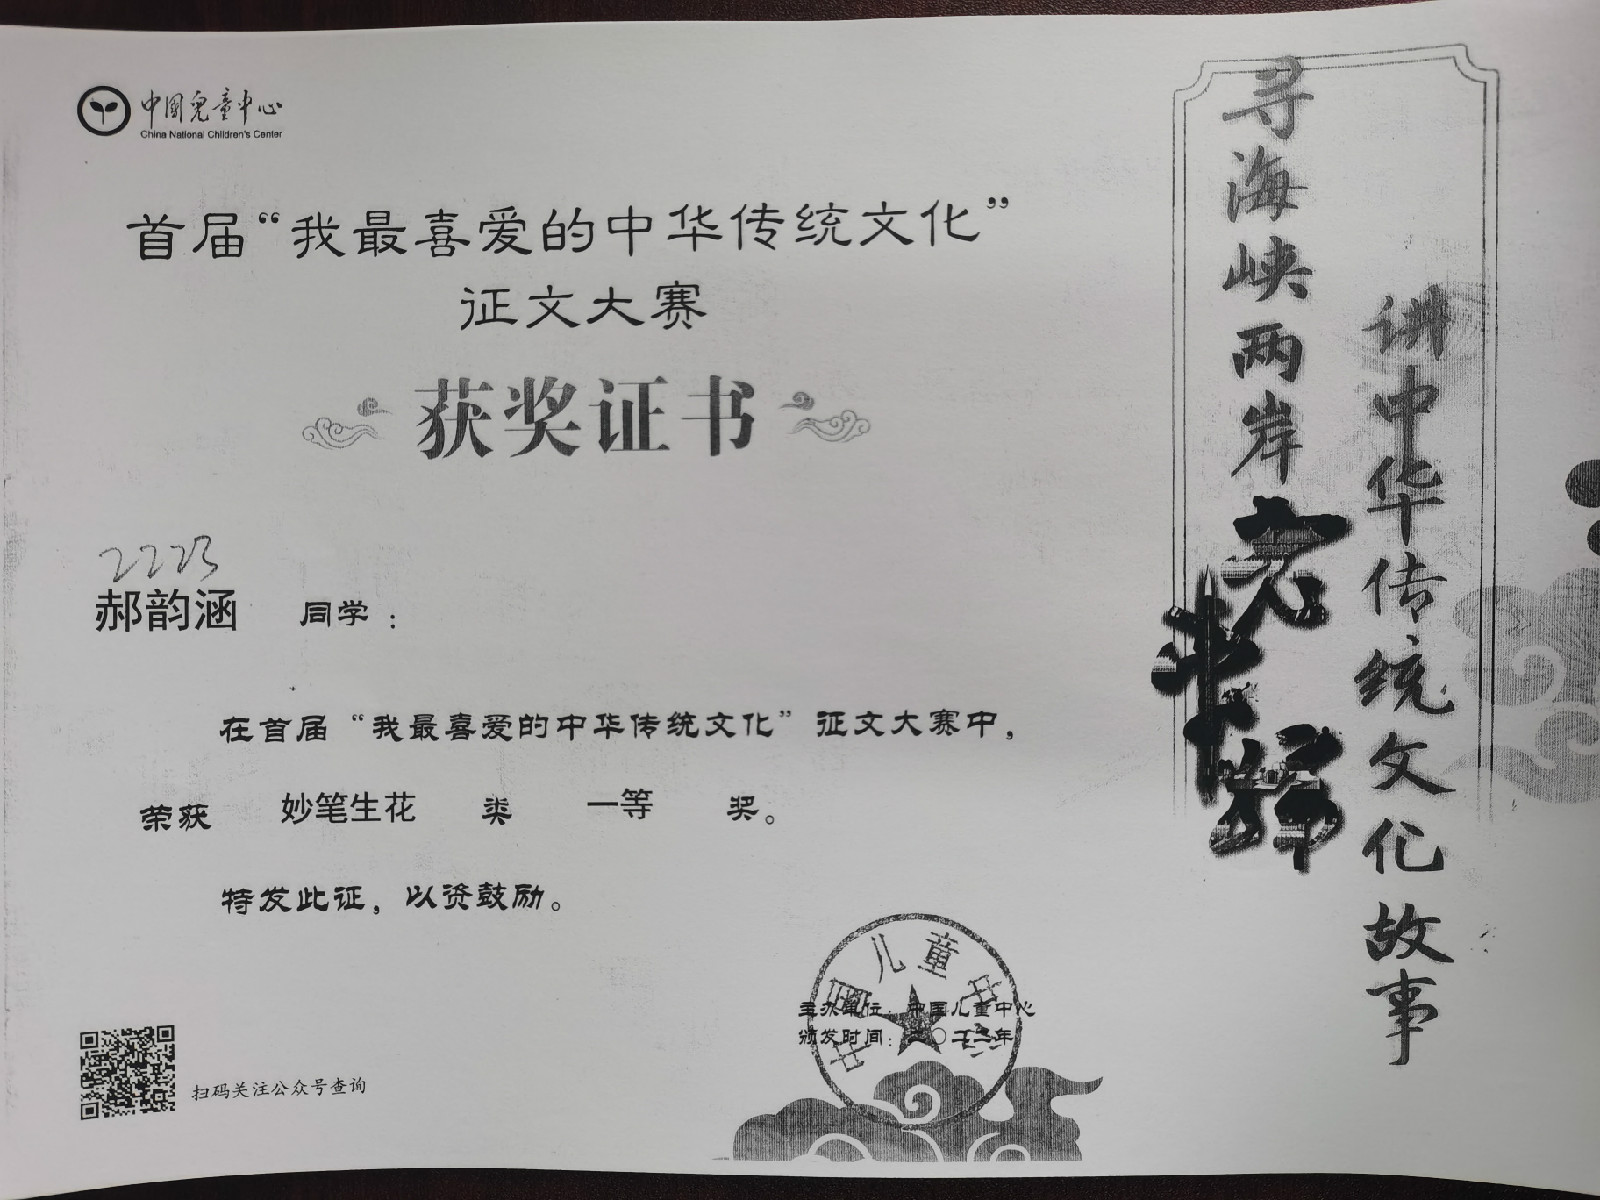 中国儿童中心
China National Children's Center
首届“我最喜爱的中华传统文化”
征文大赛
获奖证书
2223
郝韵涵 同学：
在首届“我最喜爱的中华传统文化”征文大赛中，
荣获 妙笔生花 类 一等 奖。
特发此证，以资鼓励。
主办单位：中国儿童中心
颁发时间：二〇二二年
中国儿童中心
扫码关注公众号查询
寻海峡两岸
讲中华传统文化故事